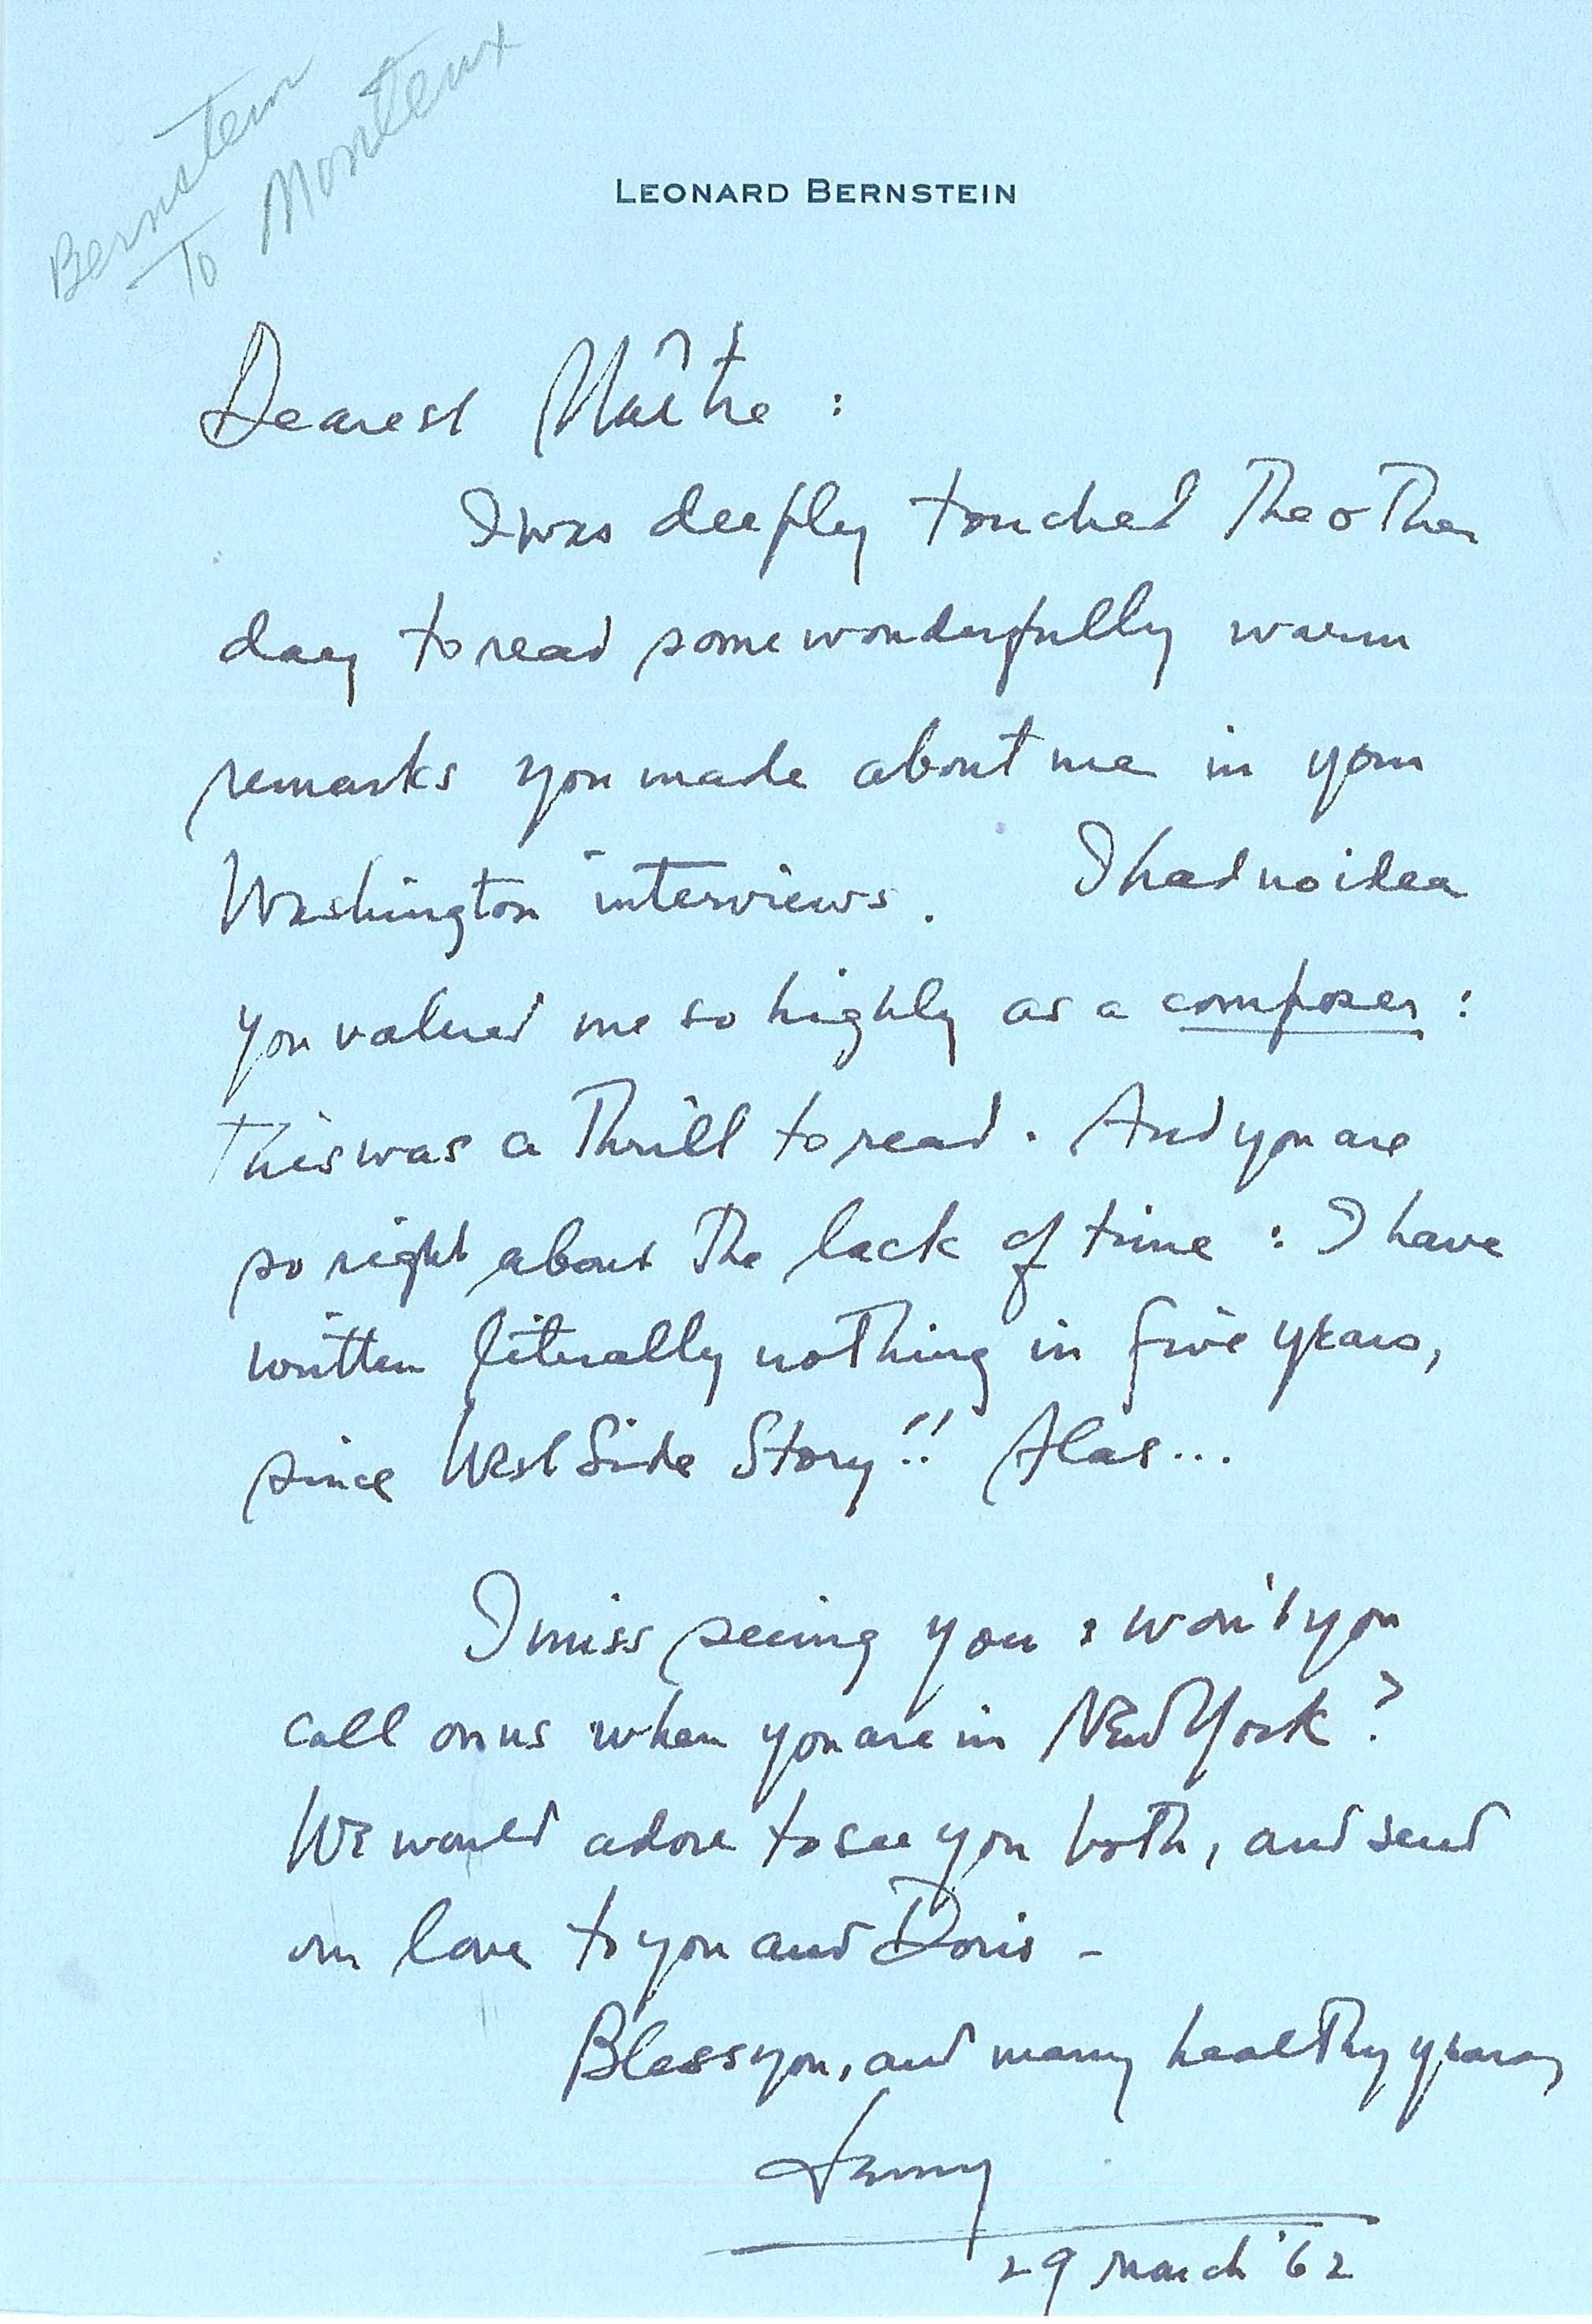 Bernstein
To Monteux
LEONARD BERNSTEIN
Dearest Maître :
I was deeply touched the other
day to read some wonderfully warm
remarks you made about me in your
Washington interviews. I had no idea
you valued me so highly as a composer :
this was a thrill to read. And you are
so right about the lack of time : I have
written literally nothing in five years,
since West Side Story!! Alas...
I miss seeing you : won't you
call on us when you are in New York?
We would adore to see you both, and send
our love to you and Doris -
Bless you, and many healthy years,
Lenny
29 March '62